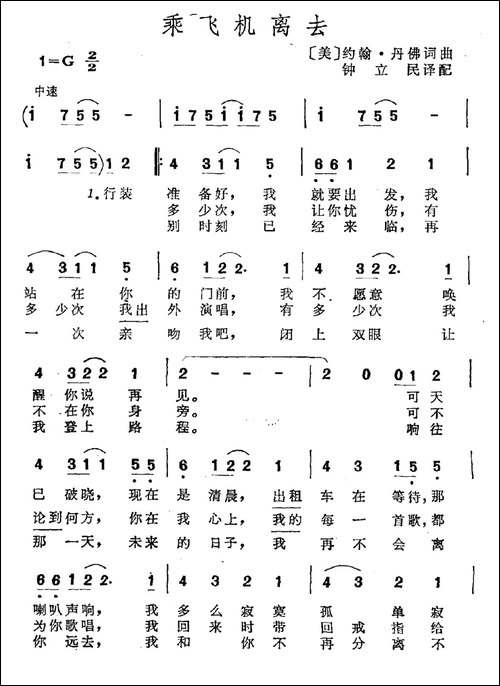 乘飞机离去
1=G 2/2
〔美〕约翰·丹佛词曲
钟立民译配
中速
(i 7 5 5 - | i 7 5 i i 7 5 | i 7 5 5 - |
i 7 5 5) 1 2 ‖: 4 3 1 1 5 | 6 6 1 2 1 |
1.行装 准备好,我 就要出发,我
多少次,我 让你忧伤,有
别时刻已 经来临,再
4 3 1 1 5 | 6 1 2 2. 1 | 4 3 2 2. 1 |
站在你的门前,我不愿意唤
多少次我出外演唱,有多少次我
一次亲吻我吧,闭上双眼让
4 3 2 2 1 | 2 - - - | 2 0 0 1 2 |
醒你说再见。 可天
不在你身旁。 可不
我登上路程。 响往
4 3 1 1 5 5 | 6 1 2 2 1 1 | 4 3 1 5 5 |
已破晓,现在是清晨,出租车在等待,那
论到何方,你在我心上,我的每一首歌,都
那一天,未来的日子,我再不会离
6 6 1 2 2. 1 | 4 3 2 1 | 4 3 2 1 |
喇叭声响,我多么寂寞孤单寂
为你歌唱,我回来时带回戒指给
你远去,我和你不再分离不